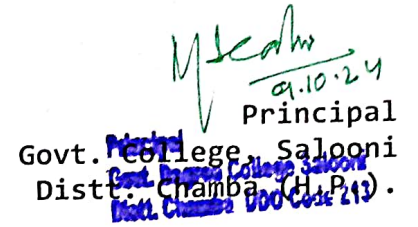 9.10.24
Principal
Govt. College, Salooni
Distt. Chamba (H.P.).
Principal
Govt. Degree College Salooni
Distt. Chamba DDO Code 213